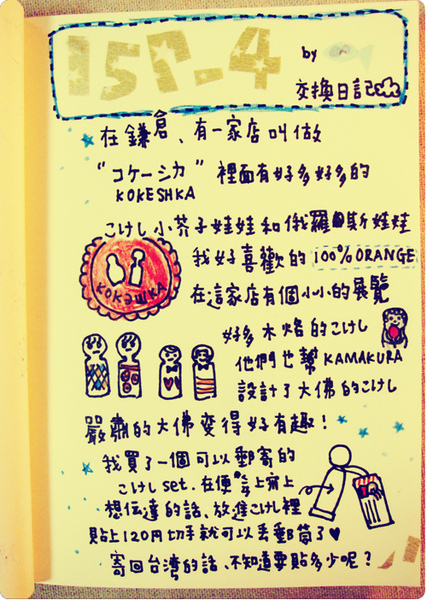 157-4
by
交換日記
在鎌倉、有一家店叫做
"コケーシカ" 裡面有好多好多的
KOKESHKA
こけし小芥子娃娃和俄羅斯娃娃
我好喜歡的 100% ORANGE
在這家店有個小小的展覽
KOKэШKA
好多木焰的こけし
他們也幫 KAMAKURA
設計了大佛的こけし
嚴肅的大佛變得好有趣！
我買了一個可以郵寄的
こけし set. 在便箋上寫上
想傳達的話、放進こけし裡
貼上120円切手就可以丟郵筒了♥
寄回台湾的話、不知道要貼多少呢？